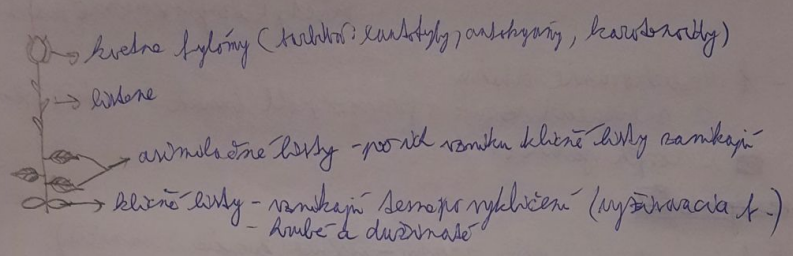 kvetné fylómy (farbivá: xantofyly, antokyány, karotenoidy)
listene
asimilačné listy - po ich vzniku klíčné listy zanikajú
klíčné listy - vznikajú po vyklíčení (vyživovacia f.)
- hrubé a dužinaté